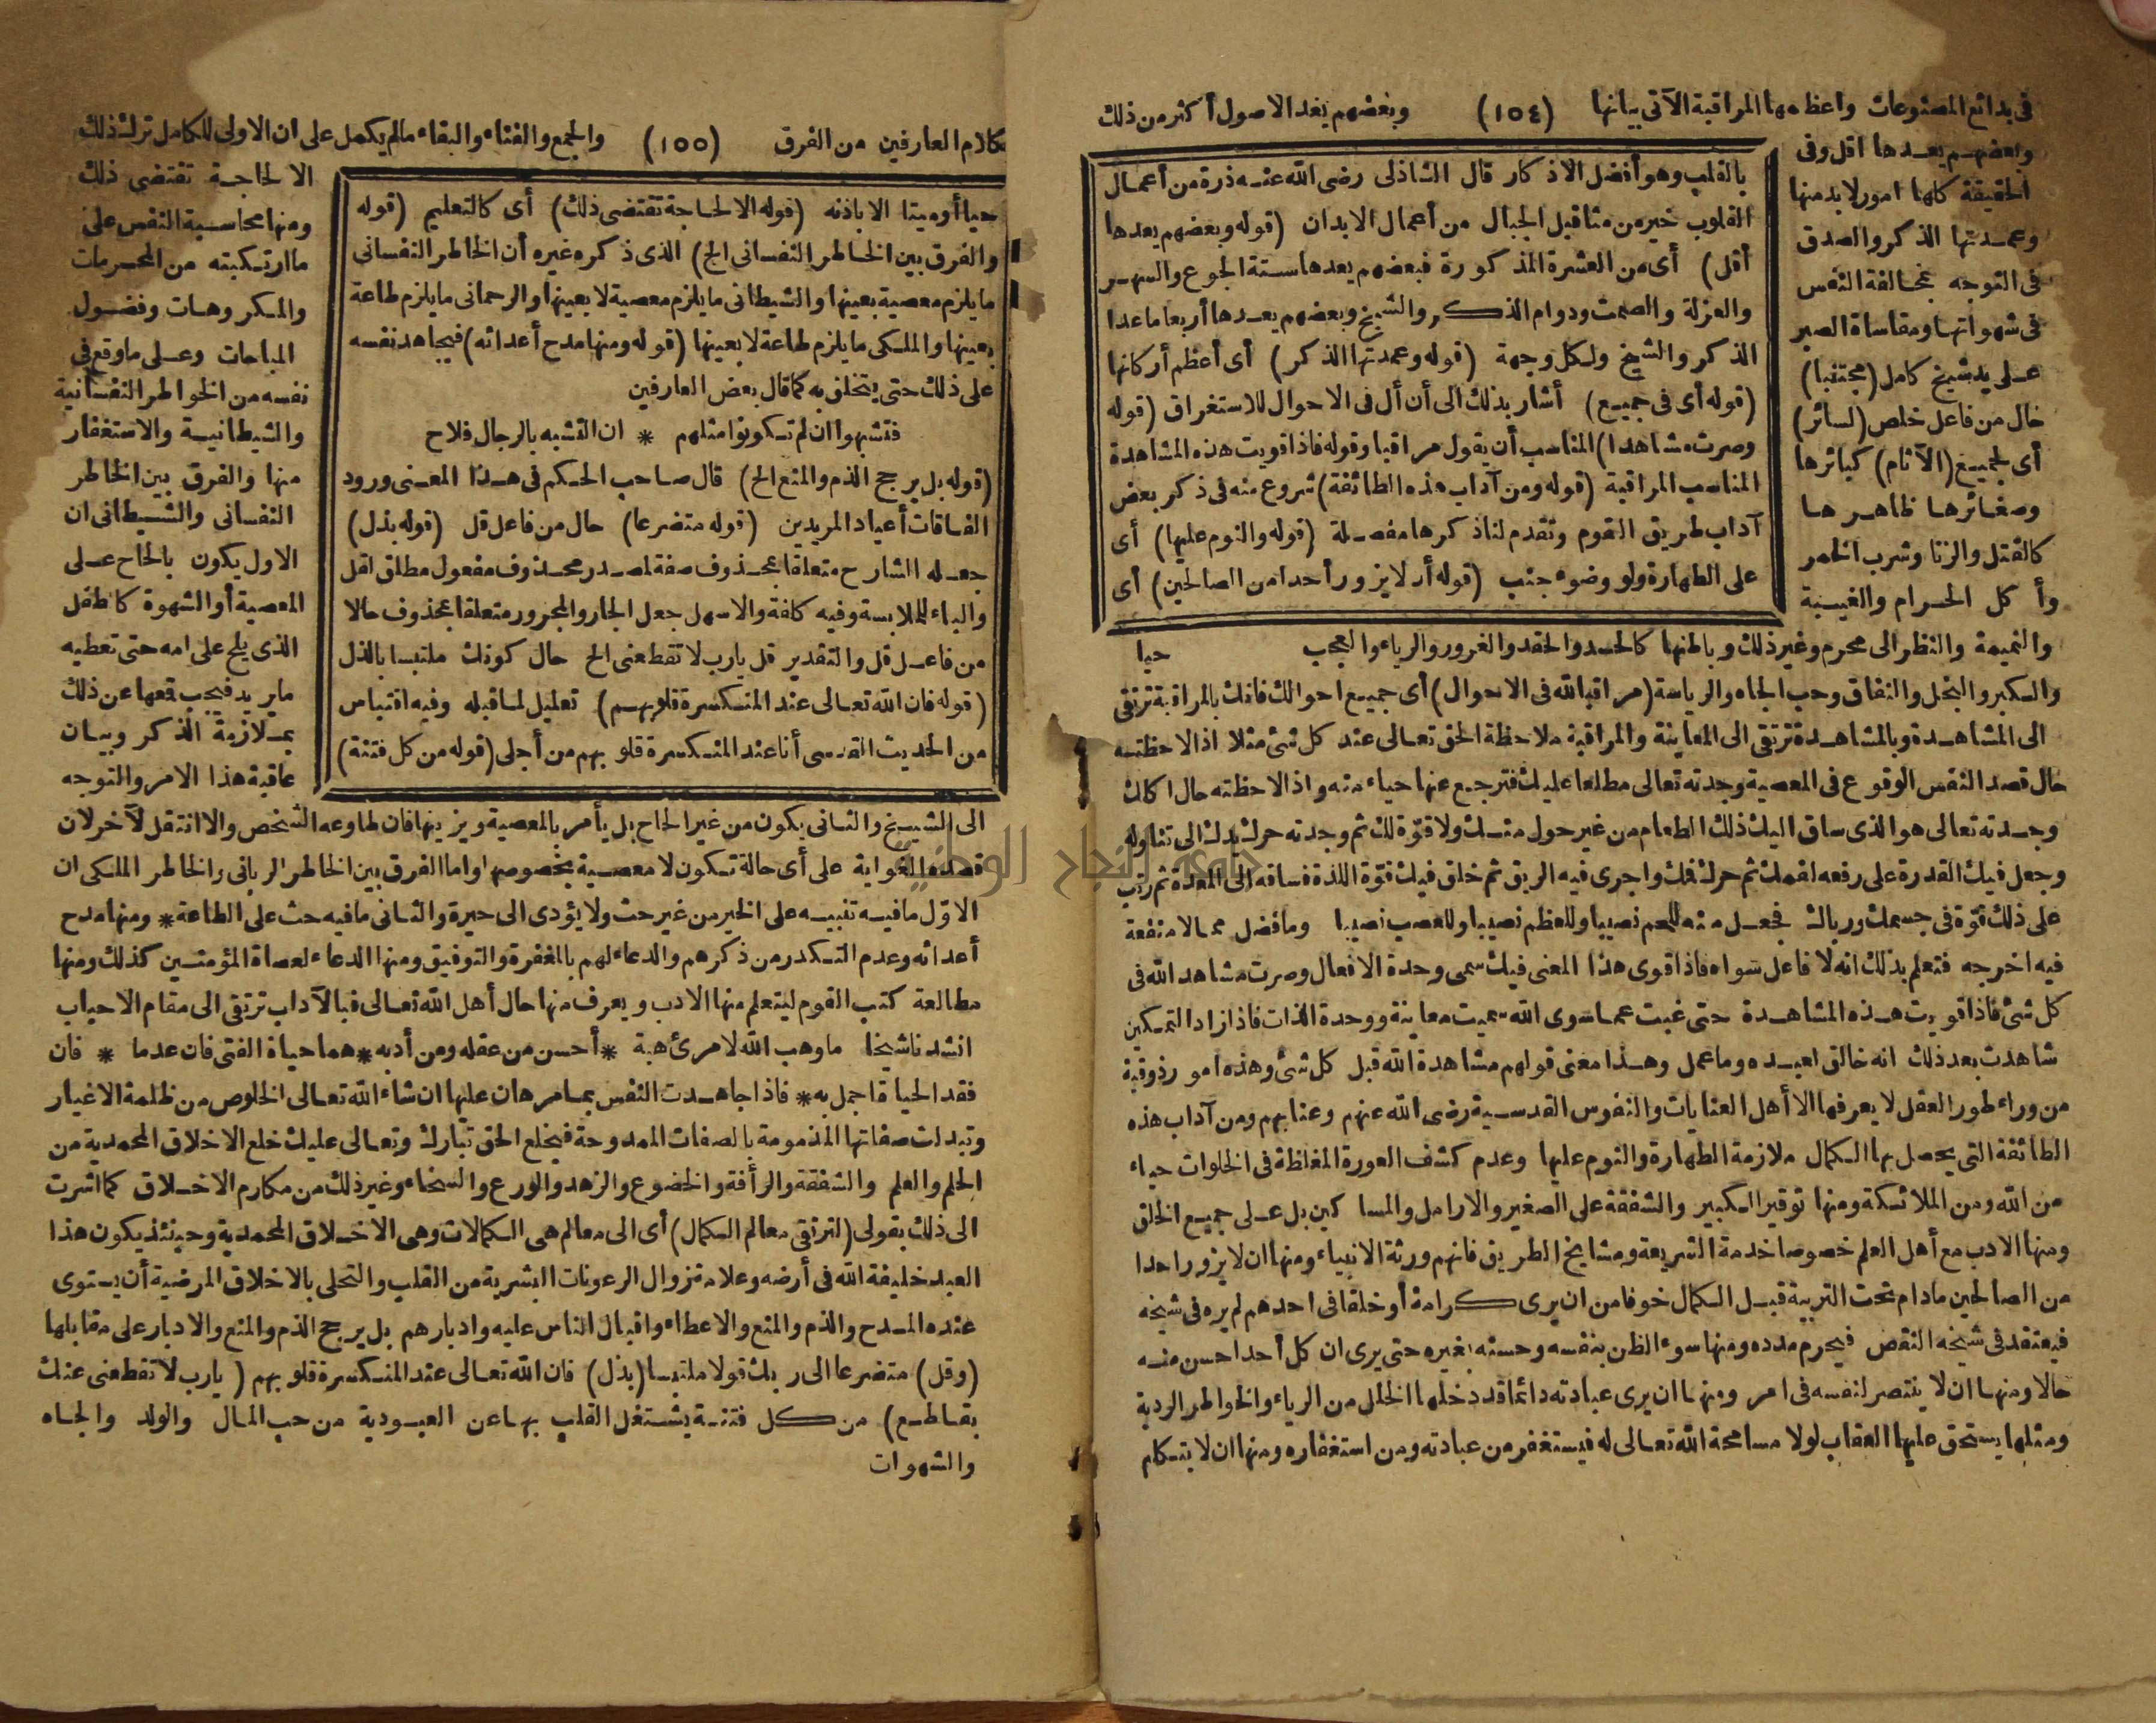 في بدائع المصنوعات واعظمها المراقبة الآتي بيانها (١٥٤) وبعضهم يعد الاصول أكثر من ذلك
وبعضهم يعدها اقل وفي
الحقيقة كلها امور لا بد منها
وعمدتها الذكر والصدق
في التوجه بمخالفة النفس
في شهواتها ومقاساة الصبر
على يد شيخ كامل (مجتنبا)
حال من فاعل خلص (لسائر)
أي لجميع (الآثام) كبائرها
وصغائرها ظاهرها
كالقتل والزنا وشرب الخمر
وأكل الحرام والغيبة
بالقلب وهو أفضل الاذكار قال الشاذلي رضى الله عنه ذرة من أعمال
القلوب خير من مثاقيل الجبال من أعمال الابدان (قوله وبعضهم يعدها
أقل) أي من العشرة المذكورة فبعضهم يعدها ستة الجوع والسهر
والعزلة والصمت ودوام الذكر والشيخ وبعضهم يعدها أربعا ماعدا
الذكر والشيخ ولكل وجهة (قوله وعمدتها الذكر) أي أعظم أركانها
(قوله أي في جميع) أشار بذلك الى أن أل في الاحوال للاستغراق (قوله
وصرت مشاهدا) المناسب أن يقول مراقبا وقوله فاذا قويت هذه المشاهدة
المناسب المراقبة (قوله ومن آداب هذه الطائفة) شروع منه في ذكر بعض
آداب طريق القوم وتقدم لنا ذكرها مفصلة (قوله والنوم عليها) أي
على الطهارة ولو وضوء جنب (قوله أن لا يزور أحدا من الصالحين) أي
حيا
والنميمة والنظر الى محرم وغير ذلك وباطنها كالحسد والحقد والغرور والرياء والعجب
والكبر والبخل والنفاق وحب الجاه والرياسة (مراقبا لله في الاحوال) أي جميع احوالك فانك بالمراقبة ترتقي
الى المشاهدة وبالمشاهدة ترتقي الى المعاينة والمراقبة ملاحظة الحق تعالى عند كل شئ مثلا اذا لاحظته
حال قصد النفس الوقوع في المعصية وجدته تعالى مطلعا عليك فترجع عنها حياء منه واذا لاحظته حال اكلك
وجدته تعالى هو الذي ساق اليك ذلك الطعام من غير حول منك ولا قوّة لك ثم وجدته حرك يدك الى تناوله
وجعل فيك القدرة على رفعه لفمك ثم حرك فك واجرى فيه الريق ثم خلق فيك قوّة اللذة فساقه الى المعدة ثم رتب
على ذلك قوّة في جسمك ورباك فجعل منه للحم نصيبا وللعظم نصيبا وللعصب نصيبا وما فضل مما لا منفعة
فيه اخرجه فتعلم بذلك انه لا فاعل سواه فاذا قوى هذا المعنى فيك سمى وحدة الافعال وصرت مشاهد الله في
كل شئ فاذا قويت هذه المشاهدة حتى غبت عما سوى الله سميت معاينة ووحدة الذات فاذا زاد التمكين
شاهدت بعد ذلك انه خالق لعبيده وما عمل وهذا معنى قولهم مشاهدة الله قبل كل شئ وهذه امور ذوقية
من وراء طور العقل لا يعرفها الا أهل العنايات والنفوس القدسية رضى الله عنهم وعنا بهم ومن آداب هذه
الطائفة التي يحصل بها الكمال ملازمة الطهارة والنوم عليها وعدم كشف العورة المغلظة في الخلوات حياء
من الله ومن الملائكة ومنها توقير الكبير والشفقة على الصغير والارامل والمساكين بل على جميع الخلق
ومنها الادب مع أهل العلم خصوصا خدمة الشريعة ومشايخ الطريق فانهم ورثة الانبياء ومنها ان لا يزور احدا
من الصالحين مادام تحت التربية قبل الكمال خوفا من ان يرى كرامة أو خلقا في احدهم لم يره في شيخه
فيعتقد في شيخه النقص فيحرم مدده ومنها سوء الظن بنفسه وحسنه بغيره حتى يرى ان كل أحد احسن منه
حالا ومنها ان لا ينتصر لنفسه في امر ومنها ان يرى عبادته دائما قد دخلها الخلل من الرياء والخواطر الردية
ومثلها يستحق عليها العقاب لولا مسامحة الله تعالى له فيستغفر من عبادته ومن استغفاره ومنها ان لا يتكلم
بكلام العارفين من الفرق (١٥٥) والجمع والفناء والبقاء مالم يكمل على ان الاولى للكامل ترك ذلك
الا لحاجة تقتضي ذلك
ومنها محاسبة النفس على
ما ارتكبته من المحرمات
والمكروهات وفضول
المباحات وعلى ما وقع في
نفسه من الخواطر النفسانية
والشيطانية والاستغفار
منها والفرق بين الخاطر
النفساني والشيطاني ان
الاول يكون بالحاح على
المعصية أو الشهوة كالطفل
الذي يلح على امه حتى تعطيه
ما يريد فيجب قمعها عن ذلك
بملازمة الذكر وبيان
عاقبة هذا الامر والتوجه
حيا أو ميتا الا باذنه (قوله الا لحاجة تقتضى ذلك) أي كالتعليم (قوله
والفرق بين الخاطر النفساني الخ) الذي ذكره غيره أن الخاطر النفساني
ما يلزم معصية بعينها والشيطاني ما يلزم معصية لا بعينها والرحماني ما يلزم طاعة
بعينها والملكي ما يلزم طاعة لا بعينها (قوله ومنها مدح أعدائه) فيجاهد نفسه
على ذلك حتى يتخلق به كما قال بعض العارفين
فتشبهوا ان لم تكونوا مثلهم * ان التشبه بالرجال فلاح
(قوله بل يرجح الذم والمنع الخ) قال صاحب الحكم في هذا المعنى ورود
الفاقات أعياد المريدين (قوله متضرعا) حال من فاعل قل (قوله بذل)
جعله الشارح متعلقا بمحذوف صفة لمصدر محذوف مفعول مطلق لقل
والباء للملابسة وفيه كلفة والاسهل جعل الجار والمجرور متعلقا بمحذوف حالا
من فاعل قل والتقدير قل يارب لا تقطعني الخ حال كونك ملتبسا بالذل
(قوله فان الله تعالى عند المنكسرة قلوبهم) تعليل لما قبله وفيه اقتباس
من الحديث القدسى أنا عند المنكسرة قلوبهم من أجلى (قوله من كل فتنة)
الى الشيخ والثاني يكون من غير الحاح بل يأمر بالمعصية ويزينها فان طاوعه الشخص والا انتقل لآخر لان
قصده الغواية على أي حالة تكون لا معصية بخصوصها واما الفرق بين الخاطر الرباني والخاطر الملكي ان
الاوّل ما فيه تنبيه على الخير من غير حث ولا يؤدى الى حيرة والثاني ما فيه حث على الطاعة * ومنها مدح
أعدائه وعدم التكدر من ذكرهم والدعاء لهم بالمغفرة والتوفيق ومنها الدعاء لعصاة المؤمنين كذلك ومنها
مطالعة كتب القوم ليتعلم منها الادب ويعرف منها حال أهل الله تعالى فبالآداب ترتقي الى مقام الاحباب
انشدنا شيخنا ما وهب الله لامرئ هبة * أحسن من عقله ومن أدبه * هما حياة الفتى فان عدما * فان
فقد الحياة اجمل به * فاذا جاهدت النفس بما مر هان عليها ان شاء الله تعالى الخلوص من ظلمة الاغيار
وتبدلت صفاتها المذمومة بالصفات الممدوحة فيخلع الحق تبارك وتعالى عليك خلع الاخلاق المحمدية من
الحلم والعلم والشفقة والرأفة والخضوع والزهد والورع والسخاء وغير ذلك من مكارم الاخلاق كما اشرت
الى ذلك بقولى (لترتقي معالم الكمال) أي الى معالم هي الكمالات وهي الاخلاق المحمدية وحينئذ يكون هذا
العبد خليفة الله في أرضه وعلامة زوال الرعونات البشرية من القلب والتحلى بالاخلاق المرضية أن يستوى
عنده المدح والذم والمنع والاعطاء واقبال الناس عليه وادبارهم بل يرجح الذم والمنع والادبار على مقابلها
(وقل) متضرعا الى ربك قولا ملتبسا (بذل) فان الله تعالى عند المنكسرة قلوبهم (يارب لا تقطعنى عنك
بقاطع) من كل فتنة يشتغل القلب بها عن العبودية من حب المال والولد والجاه
والشهوات
جامعة النجاح الوطنية